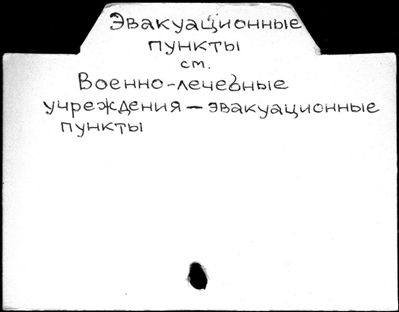 Эвакуационные
пункты
см.
Военно-лечебные
учреждения - эвакуационные
пункты